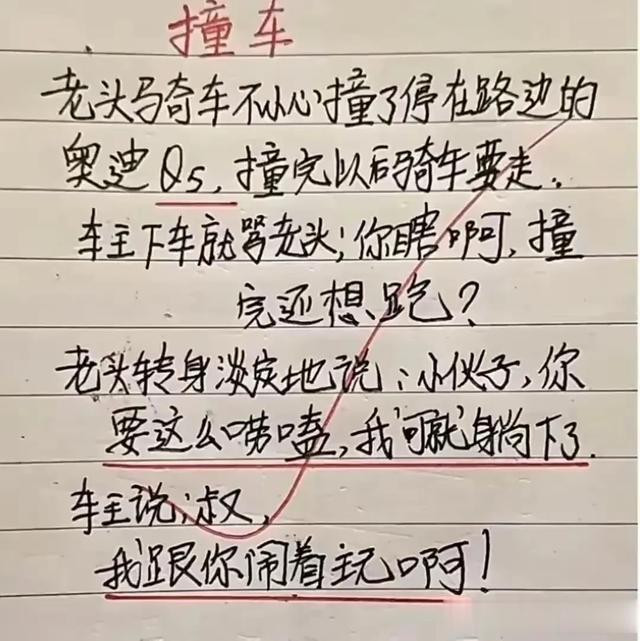 撞车
老头骑车不小心撞了停在路边的
奥迪Q5，撞完以后骑车要走。
车主下车就骂老头；你瞎啊，撞
完还想跑？
老头转身淡定地说：小伙子，你
要这么唠嗑，我可就躺下了.
车主说；叔，
我跟你闹着玩啊！